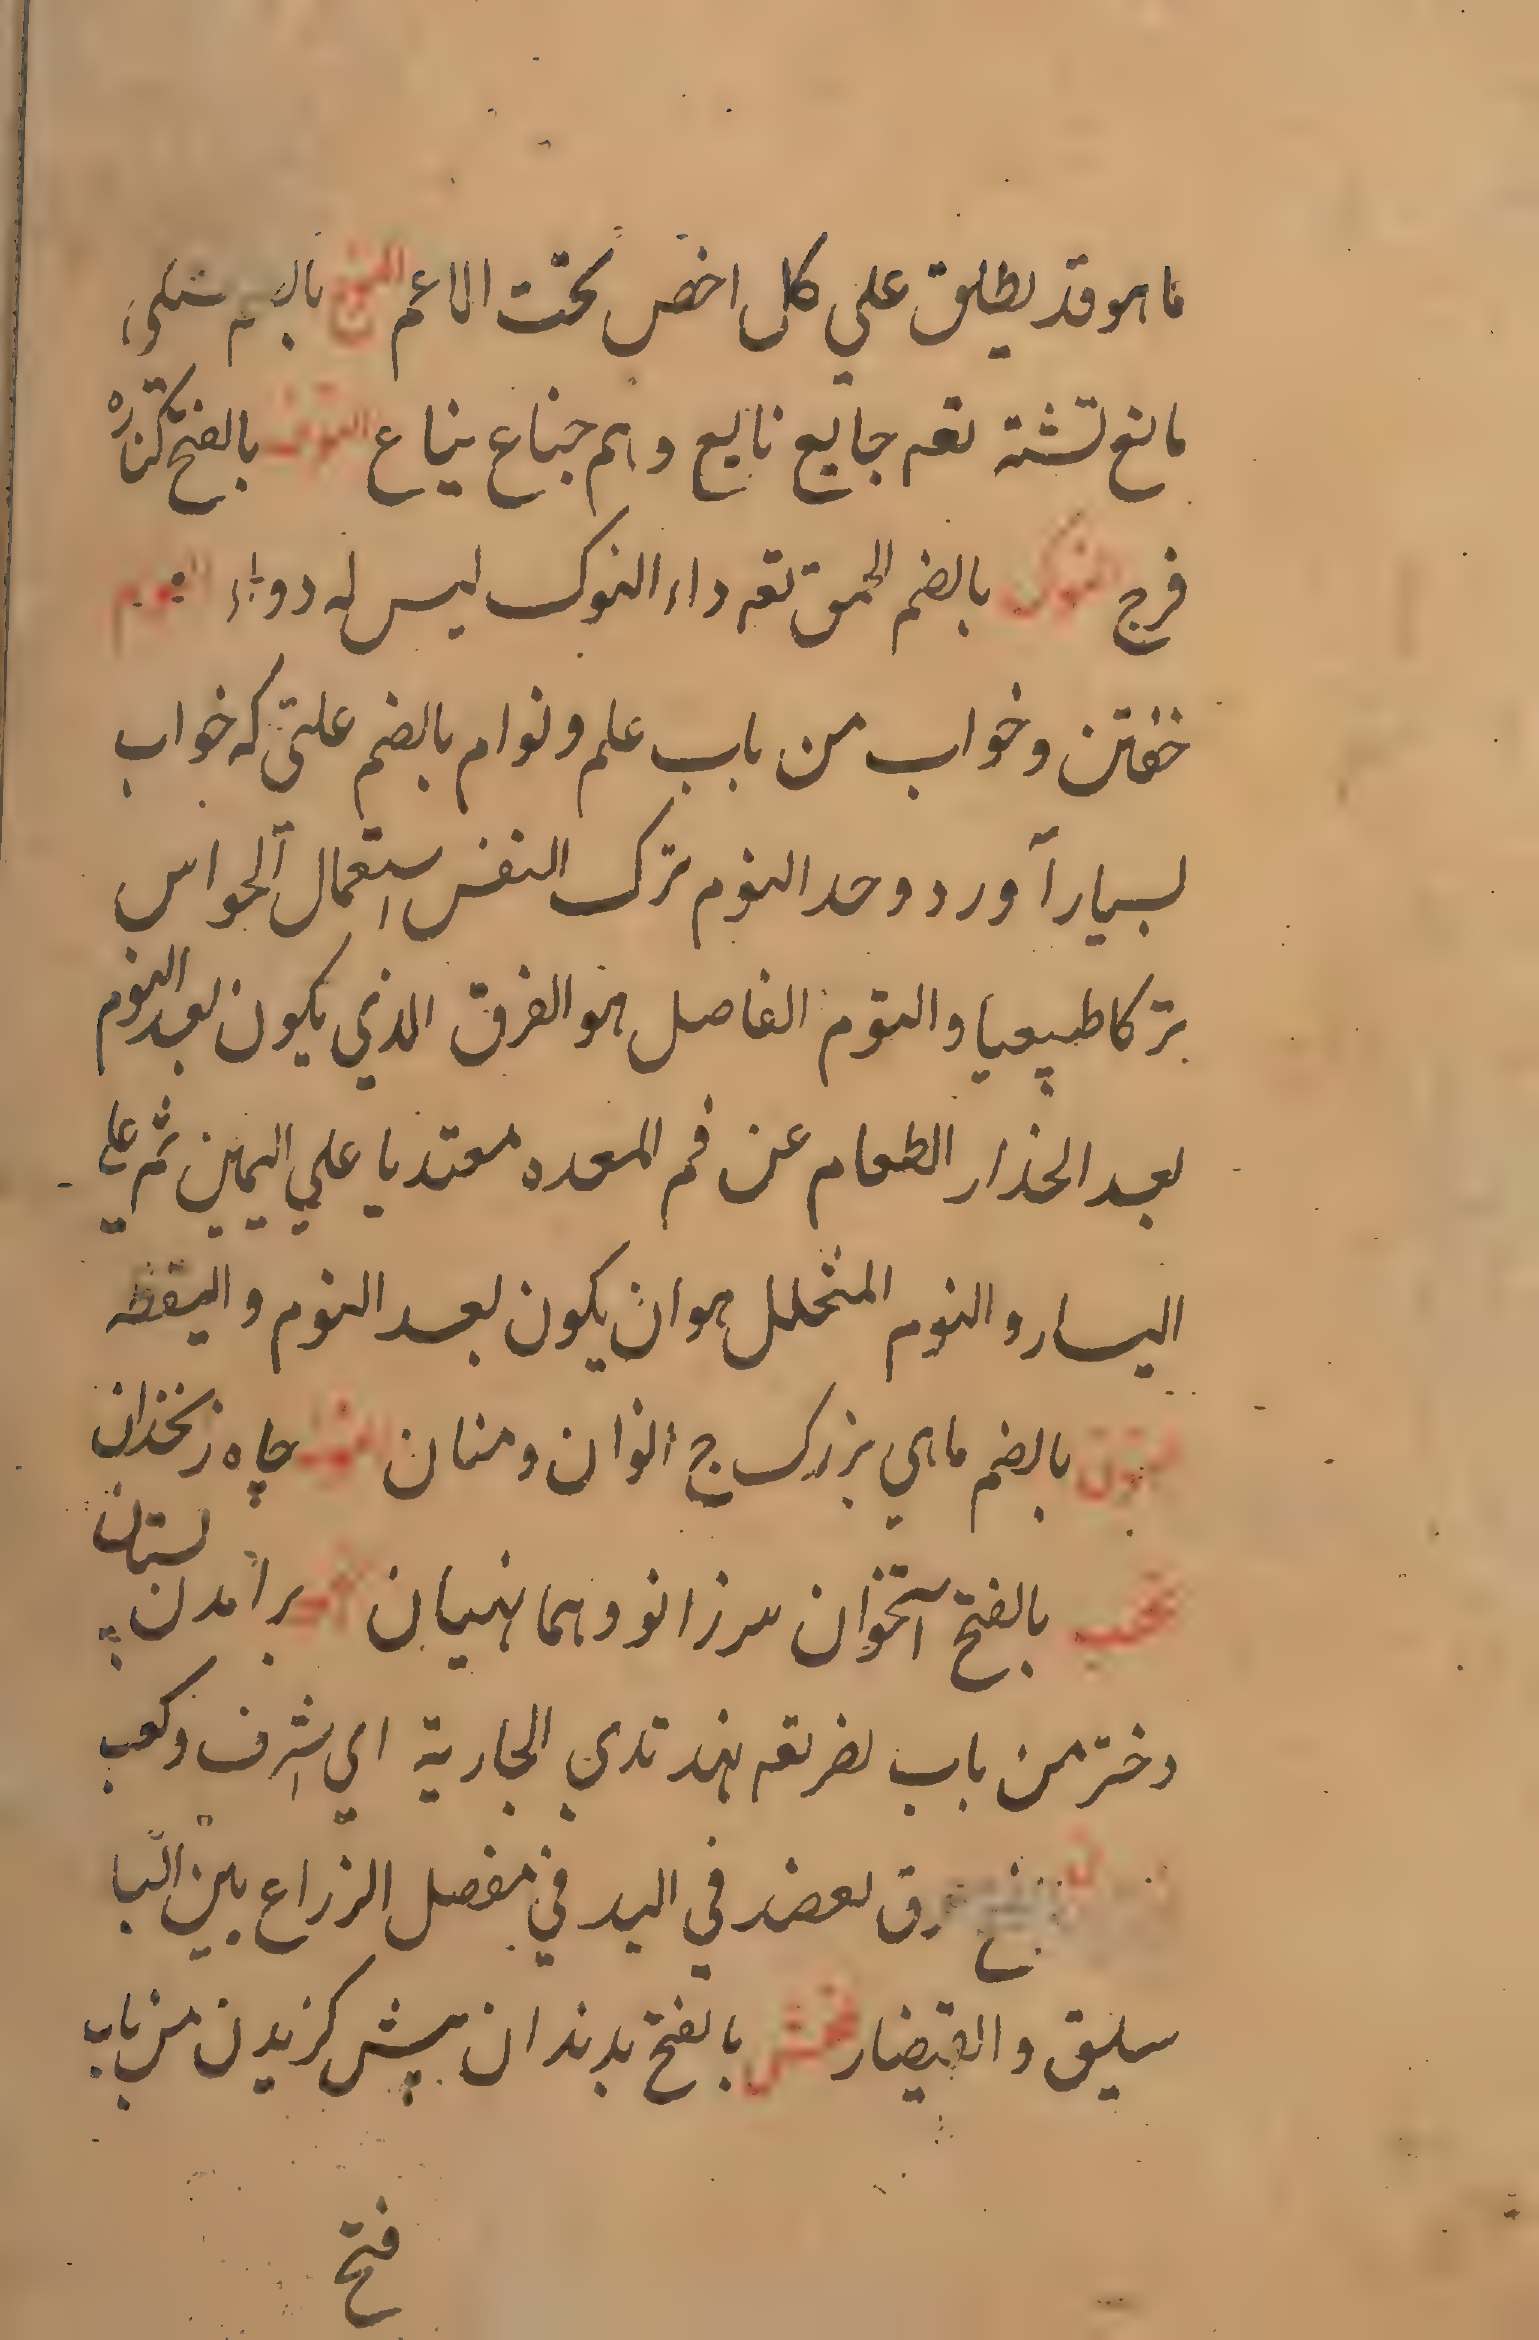 ما هو قد یطلق علي کل اخص تحت الاعم النوع بالضم تشنکي
مانع تشنه تقه جایع نایع وهم جیاع نیاع النوف بالفتح کناره
فرج النوک بالضم الحمق تقه داء النوک لیس له دواء النوم
خفتن وخواب من باب علم ونوام بالضم علتی که خواب
بسیار آورد وحد النوم ترک النفس استعمال الحواس
ترکا طبیعیا والنوم الفاصل هو الغرق الذي یکون بعد النوم
بعد الحذار الطعام عن فم المعده معتدیا علي الیمین ثم علي
الیسار والنوم المتخلل هو ان یکون بعد النوم والیقظه
النون بالضم ماهي بزرک ج انوان ومنان النونه چاه زنخدان
بالفتح استخوان سر زانو وهما نهدان برآمدن پستان
دختر من باب نصر تقه نهد ثدي الجاریة اي اشرف وکعب
عرق لعضد في الید في مفصل الزراع بین البا
سلیق والقیفار النهش بالفتح بدندان پیش کزیدن من باب
فتح